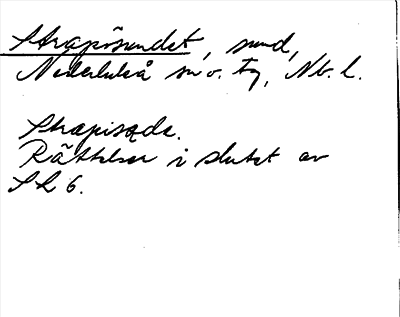 Strapösundet, sund,
Nederluleå sn o. tg, Nb. l.
Strapisọdɛ.
Rättelser i slutet av
SL 6.